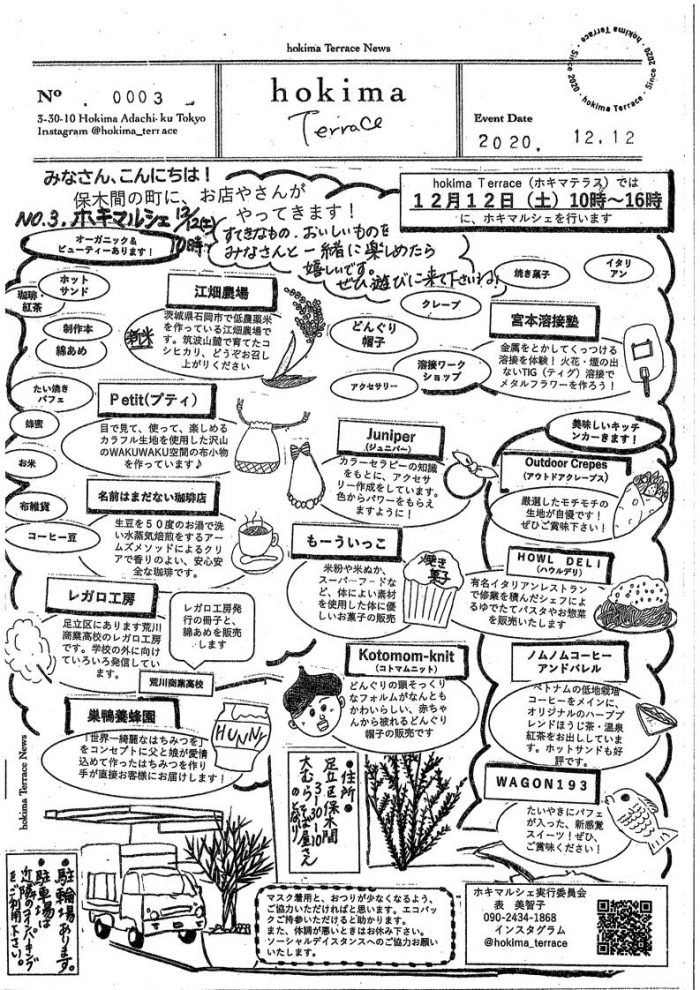 hokima Terrace News
Nº . 0003
3-30-10 Hokima Adachi-ku Tokyo
Instagram @hokima_terrace
hokima
Terrace
Since 2020 · hokima Terrace · Since 2020 · hokima Terrace ·
Event Date
2020. 12.12
みなさん、こんにちは！
保木間の町に、お店やさんが
やってきます！
NO.3. ホキマルシェ 12/12(土)
10時〜
すてきなもの、おいしいものを
みなさんと一緒に楽しめたら
嬉しいです。
ぜひ遊びに来て下さいね♪
hokima Terrace（ホキマテラス）では
１２月１２日（土）10時〜16時
に、ホキマルシェを行います
オーガニック＆
ビューティーあります！
ホット
サンド
珈琲・
紅茶
制作本
綿あめ
たい焼き
パフェ
蜂蜜
お米
布雑貨
コーヒー豆
江畑農場
新米
茨城県石岡市で低農薬米
を作っている江畑農場で
す。筑波山麓で育てたコ
シヒカリ、どうぞお召し
上がりください
どんぐり
帽子
クレープ
焼き菓子
イタリ
アン
溶接ワーク
ショップ
アクセサリー
宮本溶接塾
金属をとかしてくっつける
溶接を体験！火花・煙の出
ないTIG（ティグ）溶接で
メタルフラワーを作ろう！
Petit(プティ)
目で見て、使って、楽しめる
カラフル生地を使用した沢山
のWAKUWAKU空間の布小物
を作っています♪
Juniper
（ジュニパー）
カラーセラピーの知識
をもとに、アクセサ
リー作成をしています。
色からパワーをもらえ
ますように！
美味しいキッチ
ンカーきます！
Outdoor Crepes
（アウトドアクレープス）
厳選したモチモチの
生地が自慢です！
ぜひご賞味下さい！
名前はまだない珈琲店
生豆を５０度のお湯で洗
い水蒸気焙煎をするアー
ムズメソッドによるクリ
アで香りのよい、安心安
全な珈琲です。
もーういっこ
焼き
菓子
米粉や米ぬか、
スーパーフードな
ど、体によい素材
を使用した体に優
しいお菓子の販売
HOWL DELI
（ハウルデリ）
有名イタリアンレストラン
で修業を積んだシェフによ
るゆでたてパスタやお惣菜
を販売いたします
レガロ工房
足立区にあります荒川
商業高校のレガロ工房
です。学校の外に向け
ていろいろ発信してい
ます。
レガロ工房発
行の冊子と、
綿あめを販売
します
荒川商業高校
Kotomom-knit
（コトマムニット）
どんぐりの頭そっくり
なフォルムがなんとも
かわいらしい、赤ちゃ
んから被れるどんぐり
帽子の販売です
ノムノムコーヒー
アンドバレル
ベトナムの低地栽培
コーヒーをメインに、
オリジナルのハーブブ
レンドほうじ茶・温泉
紅茶をお出ししていま
す。ホットサンドも好
評です。
巣鴨養蜂園
HUNNY
「世界一綺麗なはちみつを」
をコンセプトに父と娘が愛情
込めて作ったはちみつを作り
手が直接お客様にお届けします！
WAGON193
たいやきにパフェ
が入った、新感覚
スイーツ！ぜひ、
ご賞味ください！
hokima Terrace News
・住所・
足立区保木間
3-30-10
大むらそば屋さん
のとなり
・駐輪場あります。
・駐車場は
近隣のコインパーキング
をご利用下さい。
マスク着用と、おつりが少なくなるよう、
ご協力いただければと思います。エコバッ
クご持参いただけると助かります。
また、体調が悪いときはお休み下さい。
ソーシャルディスタンスへのご協力お願い
いたします。
ホキマルシェ実行委員会
表 美智子
090-2434-1868
インスタグラム
@hokima_terrace